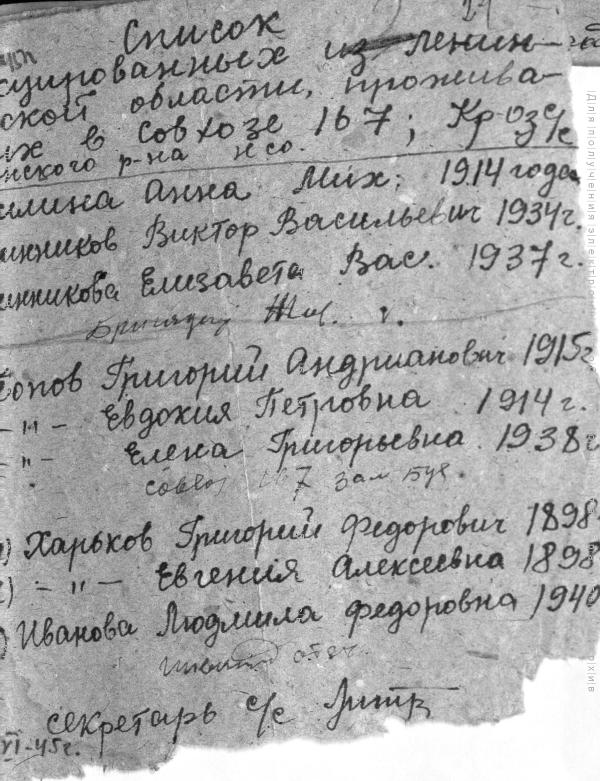 24
Список
цированных из ленин-
ской области, прожива-
их в совхозе 167; Кр-оз с/с
нского р-на нсо.
илина Анна Мих. 1914 года
инников Виктор Васильевич 1934 г.
инникова Елизавета Вас. 1937 г.
Бригадир Жив.
Попов Григорий Андрианович 1915 г
-"- Евдокия Петровна 1914 г.
-"- Елена Григорьевна 1938 г
совхоз 167 зам бух.
) Харьков Григорий Федорович 1898
2) -"- Евгения Алексеевна 1898
) Иванова Людмила Федоровна 1940
секретарь с/с
VI-45г.